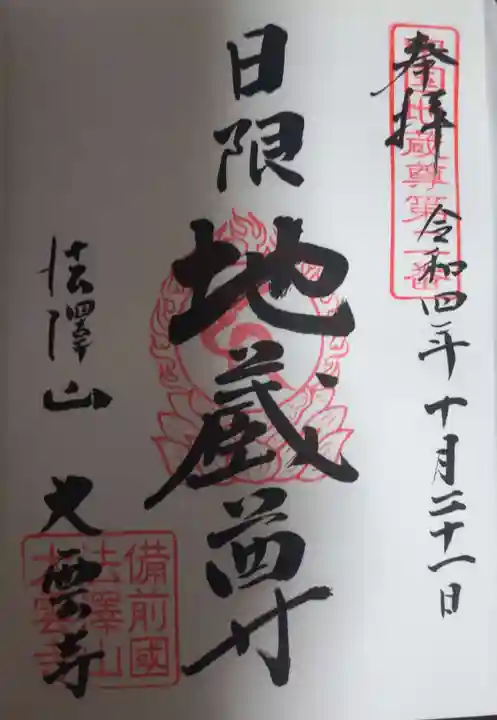 奉拝
令和四年十月二十一日
日限
地蔵尊
法澤山 大雲寺
備前國
法澤山
大雲寺